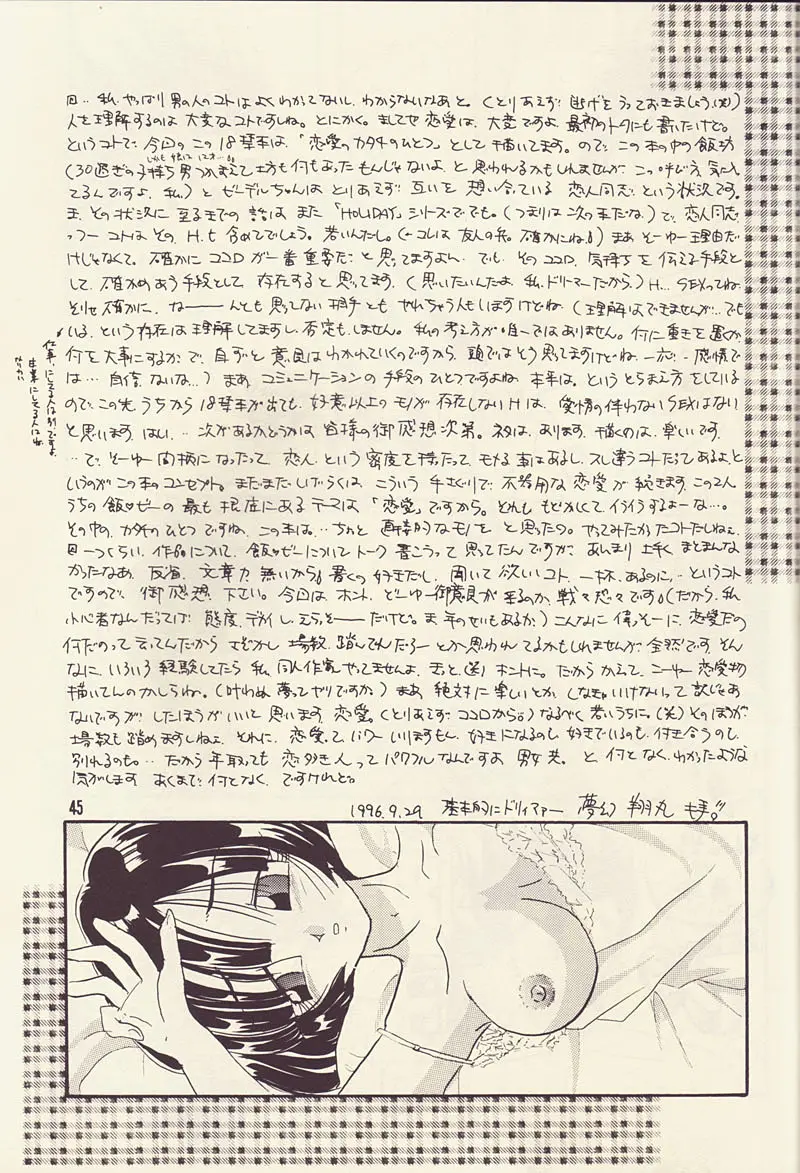 回‥ 私、やっぱり男の人のコトはよくわかってないし、わからないなあと。(とりあえず 逃げをうっておきましょう、(笑))
人を理解するのは 大変なコトですしね。とにかく。ましてや 恋愛は、大変ですよ、最初のトークにも書いたけど。
というコトで、今回のこの18禁本は、「恋愛のカタチのひとつ」として 描いてます。ので、この本の中の飯坊
(30過ぎの子持ち男つかまえて坊も何もあったもんじゃないよ、と思われるかもしれませんが、この呼び方、気に入っ
てるんですよ、私)と ビーデルちゃんは とりあえず 互いを 想い合っている 恋人同志、という状況です。
ま、その状況に 至るまでの 話は また 「HOLIDAY」シリーズででも。(つまりは次の本だな。)で、恋人同志
っつーコトはその、H、も 含めてでしょう。若いんだし。(←コレは 友人の弁。確かにね!) まあ そーゆー理由だ
けじゃなくて、確かに ココロが一番重要だ、と思ってますよん。でも、その ココロ、気持ちを 伝える手段と
して、確かめあう手段として 存在すると思ってます。(思いたいんだよ、私、ドリーマーだから。) H… SEXってね。
そりゃ確かに、な――んとも思ってない相手とも やれちゃう人もいますけどね、(理解はできませんが‥でも
いる、という存在は理解してますし、否定も、しません。私の考え方が唯一ではありません。何に重きを置くか、
何を大事にするか で、自ずと 意見はわかれていくのですから、頭ではそう思ってますけどね、一応、‥感情で
は… 自信、ないな…) まあ、コミュニケーションの手段のひとつですよね、本来は。というとらえ方をしている
ので、この先、うちから18禁本が出ても、好意以上のモノが存在しないHは、愛情の伴わないSEXはない
と思います、はい。‥次があるかどうかは 皆様の御感想次第。ネタは、あります。描くのは、楽しいです。
仕事にしてる人は別ですよ
‥で、そーゆー間柄になったって 恋人、という密度を持たって、モメる事はあるし、スレ違うコトだってあるよ、と
いうのが この本のコンセプト。まだまだ しばらくは、こういう 手さぐりで、不器用な 恋愛が 続きます、この2人。
うちの 飯♡ビーの 最も 根底にある テーマは 「恋愛」ですから。とれも もどかしくて、イライラするよーな…。
その中の、カタチのひとつ ですね、この本は。‥ちょっと 再挑的なモノを と思ったの。やってみたかったコトだしねェ。
回一つくらい、作品について、飯♡ビーについてトーク 書こうって 思ってたんですが、あんまり上手く まとまんな
かったなあ、反省。文章力 無いから! 書くの 好きだし、聞いて 欲しいコト、一杯、あるのに。‥ というコト
ですので、御感想、下さい。今回は ホント、どーゆー御意見が 来るのか、戦々恐々です!(だから、私、
小心者なんだってば! 態度、デカイし、えらそーだけど。ま、年のせいもあるか) こんなに 偉っそーに、恋愛だの
何だのって 言ってんだから さぞかし 場数、踏んでんだろー とか思われてるかもしれませんが、全然です。そん
なに、いろいろ 経験してたら 私、同人作家、やってませんよ、きっと。(笑) ホントに。だから かえって、こーゆー 恋愛物
描いてんのかしらね。(叶わぬ夢ってヤツですか) まあ、絶対に 楽しいとか、しなきゃいけないって訳じゃあ
ないですが、したほうがいいと 思います、恋愛。(とりあえず ココロから!) なるべく 若いうちに。(笑) そのほうが、
場数も 踏めますしねェ。それに、恋愛って、パワー いりますもん。好きになるのも、好きでいるのも、付き合うのも、
別れるのも。‥だから 年取っても 恋多き人ってパワフルなんですよ 男女共。と、何となく、わかったような
気がします。あくまで 何となく、ですけれど。
45
1996.9.29 基本的にドリィマー 夢幻 翔丸